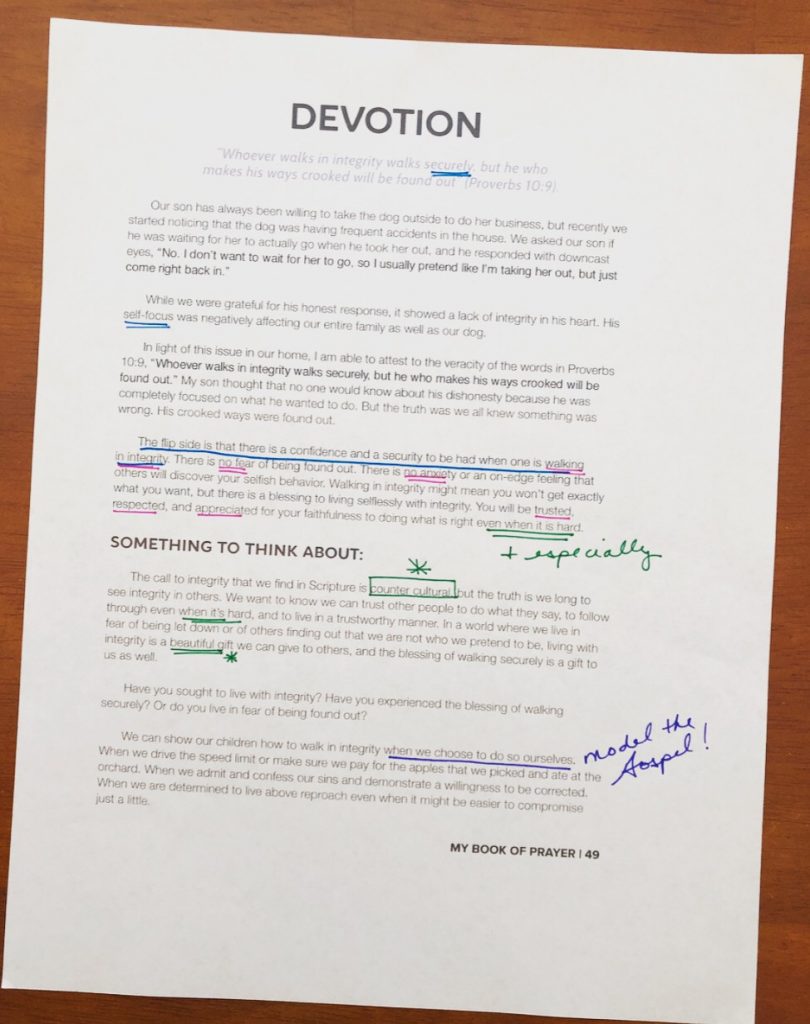 DEVOTION
"Whoever walks in integrity walks securely, but he who
makes his ways crooked will be found out" (Proverbs 10:9).
Our son has always been willing to take the dog outside to do her business, but recently we
started noticing that the dog was having frequent accidents in the house. We asked our son if
he was waiting for her to actually go when he took her out, and he responded with downcast
eyes, “No. I don’t want to wait for her to go, so I usually pretend like I’m taking her out, but just
come right back in.”
While we were grateful for his honest response, it showed a lack of integrity in his heart. His
self-focus was negatively affecting our entire family as well as our dog.
In light of this issue in our home, I am able to attest to the veracity of the words in Proverbs
10:9, “Whoever walks in integrity walks securely, but he who makes his ways crooked will be
found out.” My son thought that no one would know about his dishonesty because he was
completely focused on what he wanted to do. But the truth was we all knew something was
wrong. His crooked ways were found out.
The flip side is that there is a confidence and a security to be had when one is walking
in integrity. There is no fear of being found out. There is no anxiety or an on-edge feeling that
others will discover your selfish behavior. Walking in integrity might mean you won’t get exactly
what you want, but there is a blessing to living selflessly with integrity. You will be trusted,
respected, and appreciated for your faithfulness to doing what is right even when it is hard.
+ especially
SOMETHING TO THINK ABOUT:
The call to integrity that we find in Scripture is counter cultural, but the truth is we long to
see integrity in others. We want to know we can trust other people to do what they say, to follow
through even when it’s hard, and to live in a trustworthy manner. In a world where we live in
fear of being let down or of others finding out that we are not who we pretend to be, living with
integrity is a beautiful gift we can give to others, and the blessing of walking securely is a gift to
us as well.
Have you sought to live with integrity? Have you experienced the blessing of walking
securely? Or do you live in fear of being found out?
We can show our children how to walk in integrity when we choose to do so ourselves.
When we drive the speed limit or make sure we pay for the apples that we picked and ate at the
orchard. When we admit and confess our sins and demonstrate a willingness to be corrected.
When we are determined to live above reproach even when it might be easier to compromise
just a little.
model the
Gospel!
MY BOOK OF PRAYER | 49